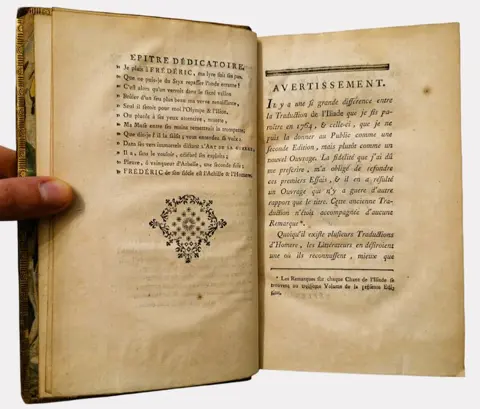 EPITRE DÉDICATOIRE.
» Je plais à FRÉDÉRIC, ma lyre suit ses pas.
» Que ne puis-je du Styx repasser l'onde errante !
» C'est alors qu'on verroit dans le sacré vallon
» Brûler d'un feu plus beau ma verve
» Seul il seroit pour moi l'Olympe & l'Ilion.
» Ou plutôt à ses yeux , muette ,
» Ma Muse entre ses mains remettroit la trompette,
» Que dis-je il la saisit ; vous entendez sa voix :
» Dans ses vers immortels éclatent l'ART DE LA GUERRE,
» Il a , sous le vouloir , exploits ;
» Pleure , ô vainqueur d'Arbelle, une seconde fois ;
» FRÉDÉRIC de son siécle est l'Achille & l'Homere.
AVERTISSEMENT.
IL y a une si grande différence entre
la Traduction de l'Iliade que je fis pa-
roître en 1764, & celle-ci, que je ne
puis la donner au Public comme une
seconde Edition, mais plutôt comme un
nouvel Ouvrage. La fidélité que j'ai dû
me prescrire, m'a obligé de refondre
ces premiers Essais, & il en a résulté
un Ouvrage qui n'y a guere d'autre
rapport que le titre. Cette ancienne Tra-
duction n'étoit accompagnée d'aucune
Remarque *.
Quoiqu'il existe plusieurs Traductions
d'Homere, les Littérateurs en desiroient
une où ils reconnussent, mieux que
* Les Remarques sur chaque Chant de l'Iliade se
trouvent au troisième Volume de la présente Edi-
tion.